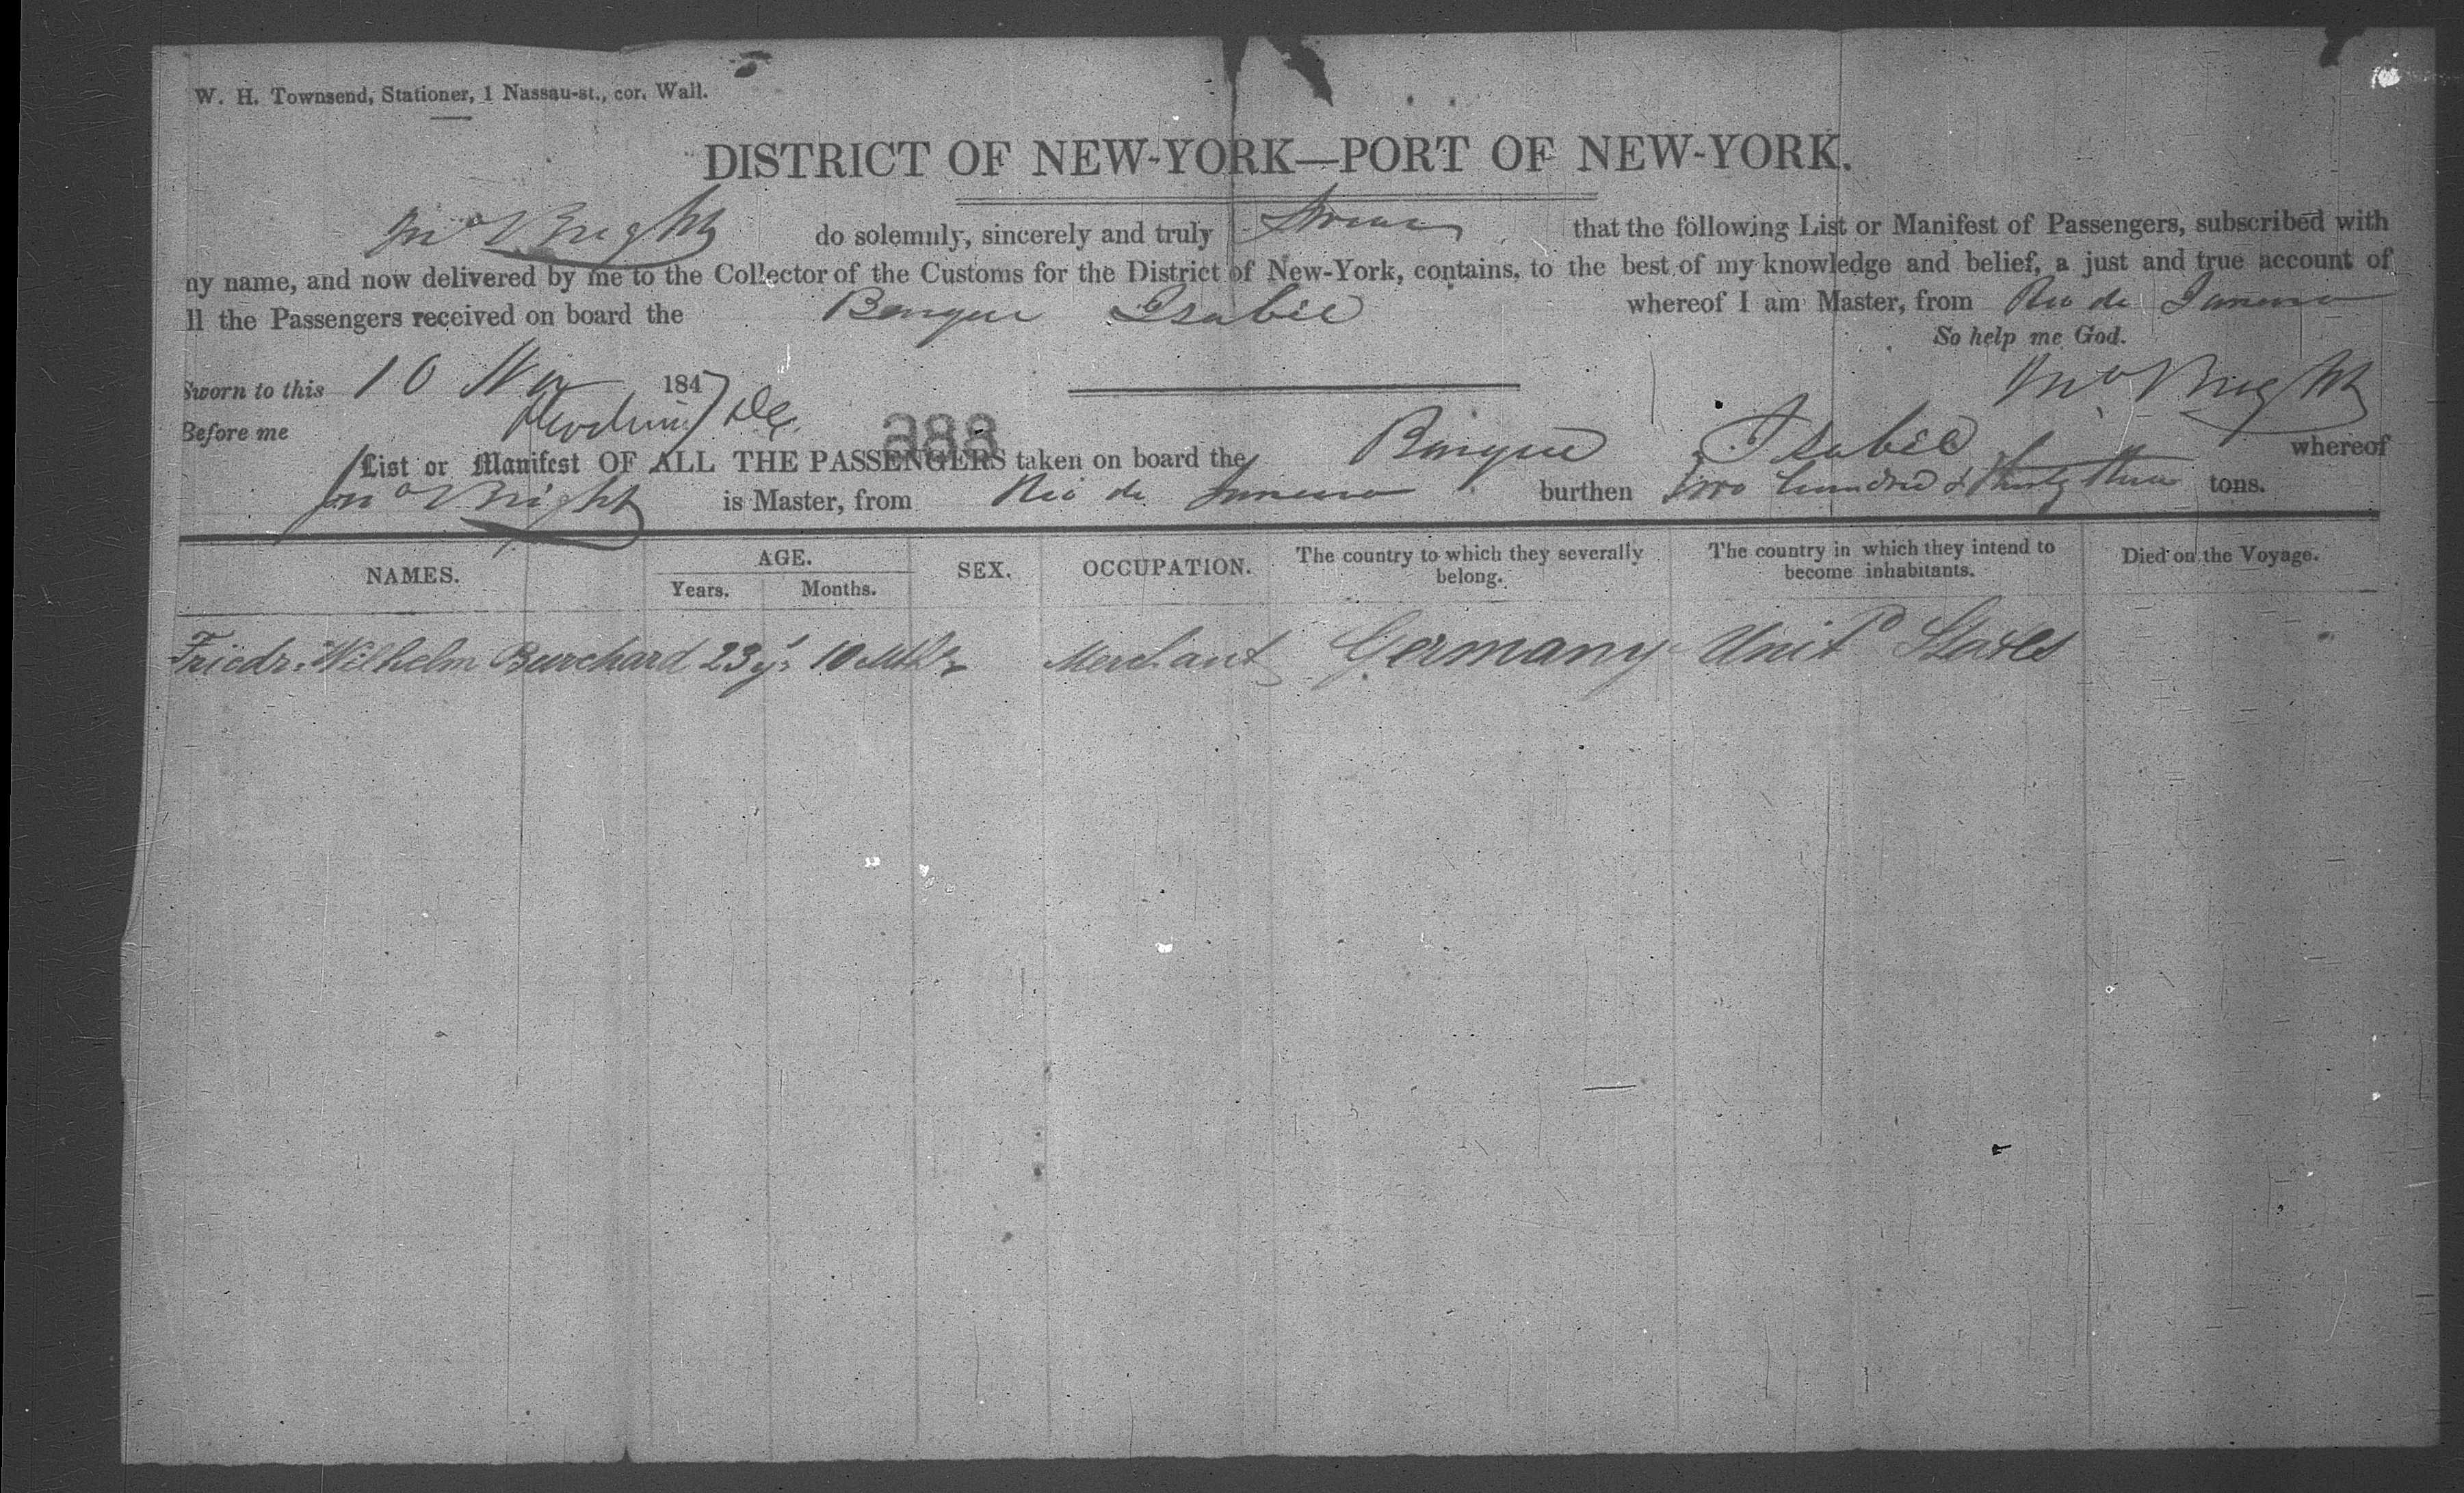 W. H. Townsend, Stationer, 1 Nassau-st., cor. Wall.
DISTRICT OF NEW-YORK—PORT OF NEW-YORK.
Jnº Bright do solemnly, sincerely and truly Swear that the following List or Manifest of Passengers, subscribed with
ny name, and now delivered by me to the Collector of the Customs for the District of New-York, contains, to the best of my knowledge and belief, a just and true account of
ll the Passengers received on board the Barque Isabel whereof I am Master, from Rio de Janeiro
So help me God.
Sworn to this 10 Nov 1847 Jnº Bright
Before me
388
List or Manifest OF ALL THE PASSENGERS taken on board the Barque Isabel whereof
Jnº Bright is Master, from Rio de Janeiro burthen Two hundred & thirty three tons.
NAMES. AGE. SEX. OCCUPATION. The country to which they severally belong. The country in which they intend to become inhabitants. Died on the Voyage.
Years. Months.
Friedr. Wilhelm Burchard 23 y's 10 Mths Merchant Germany Unitd States